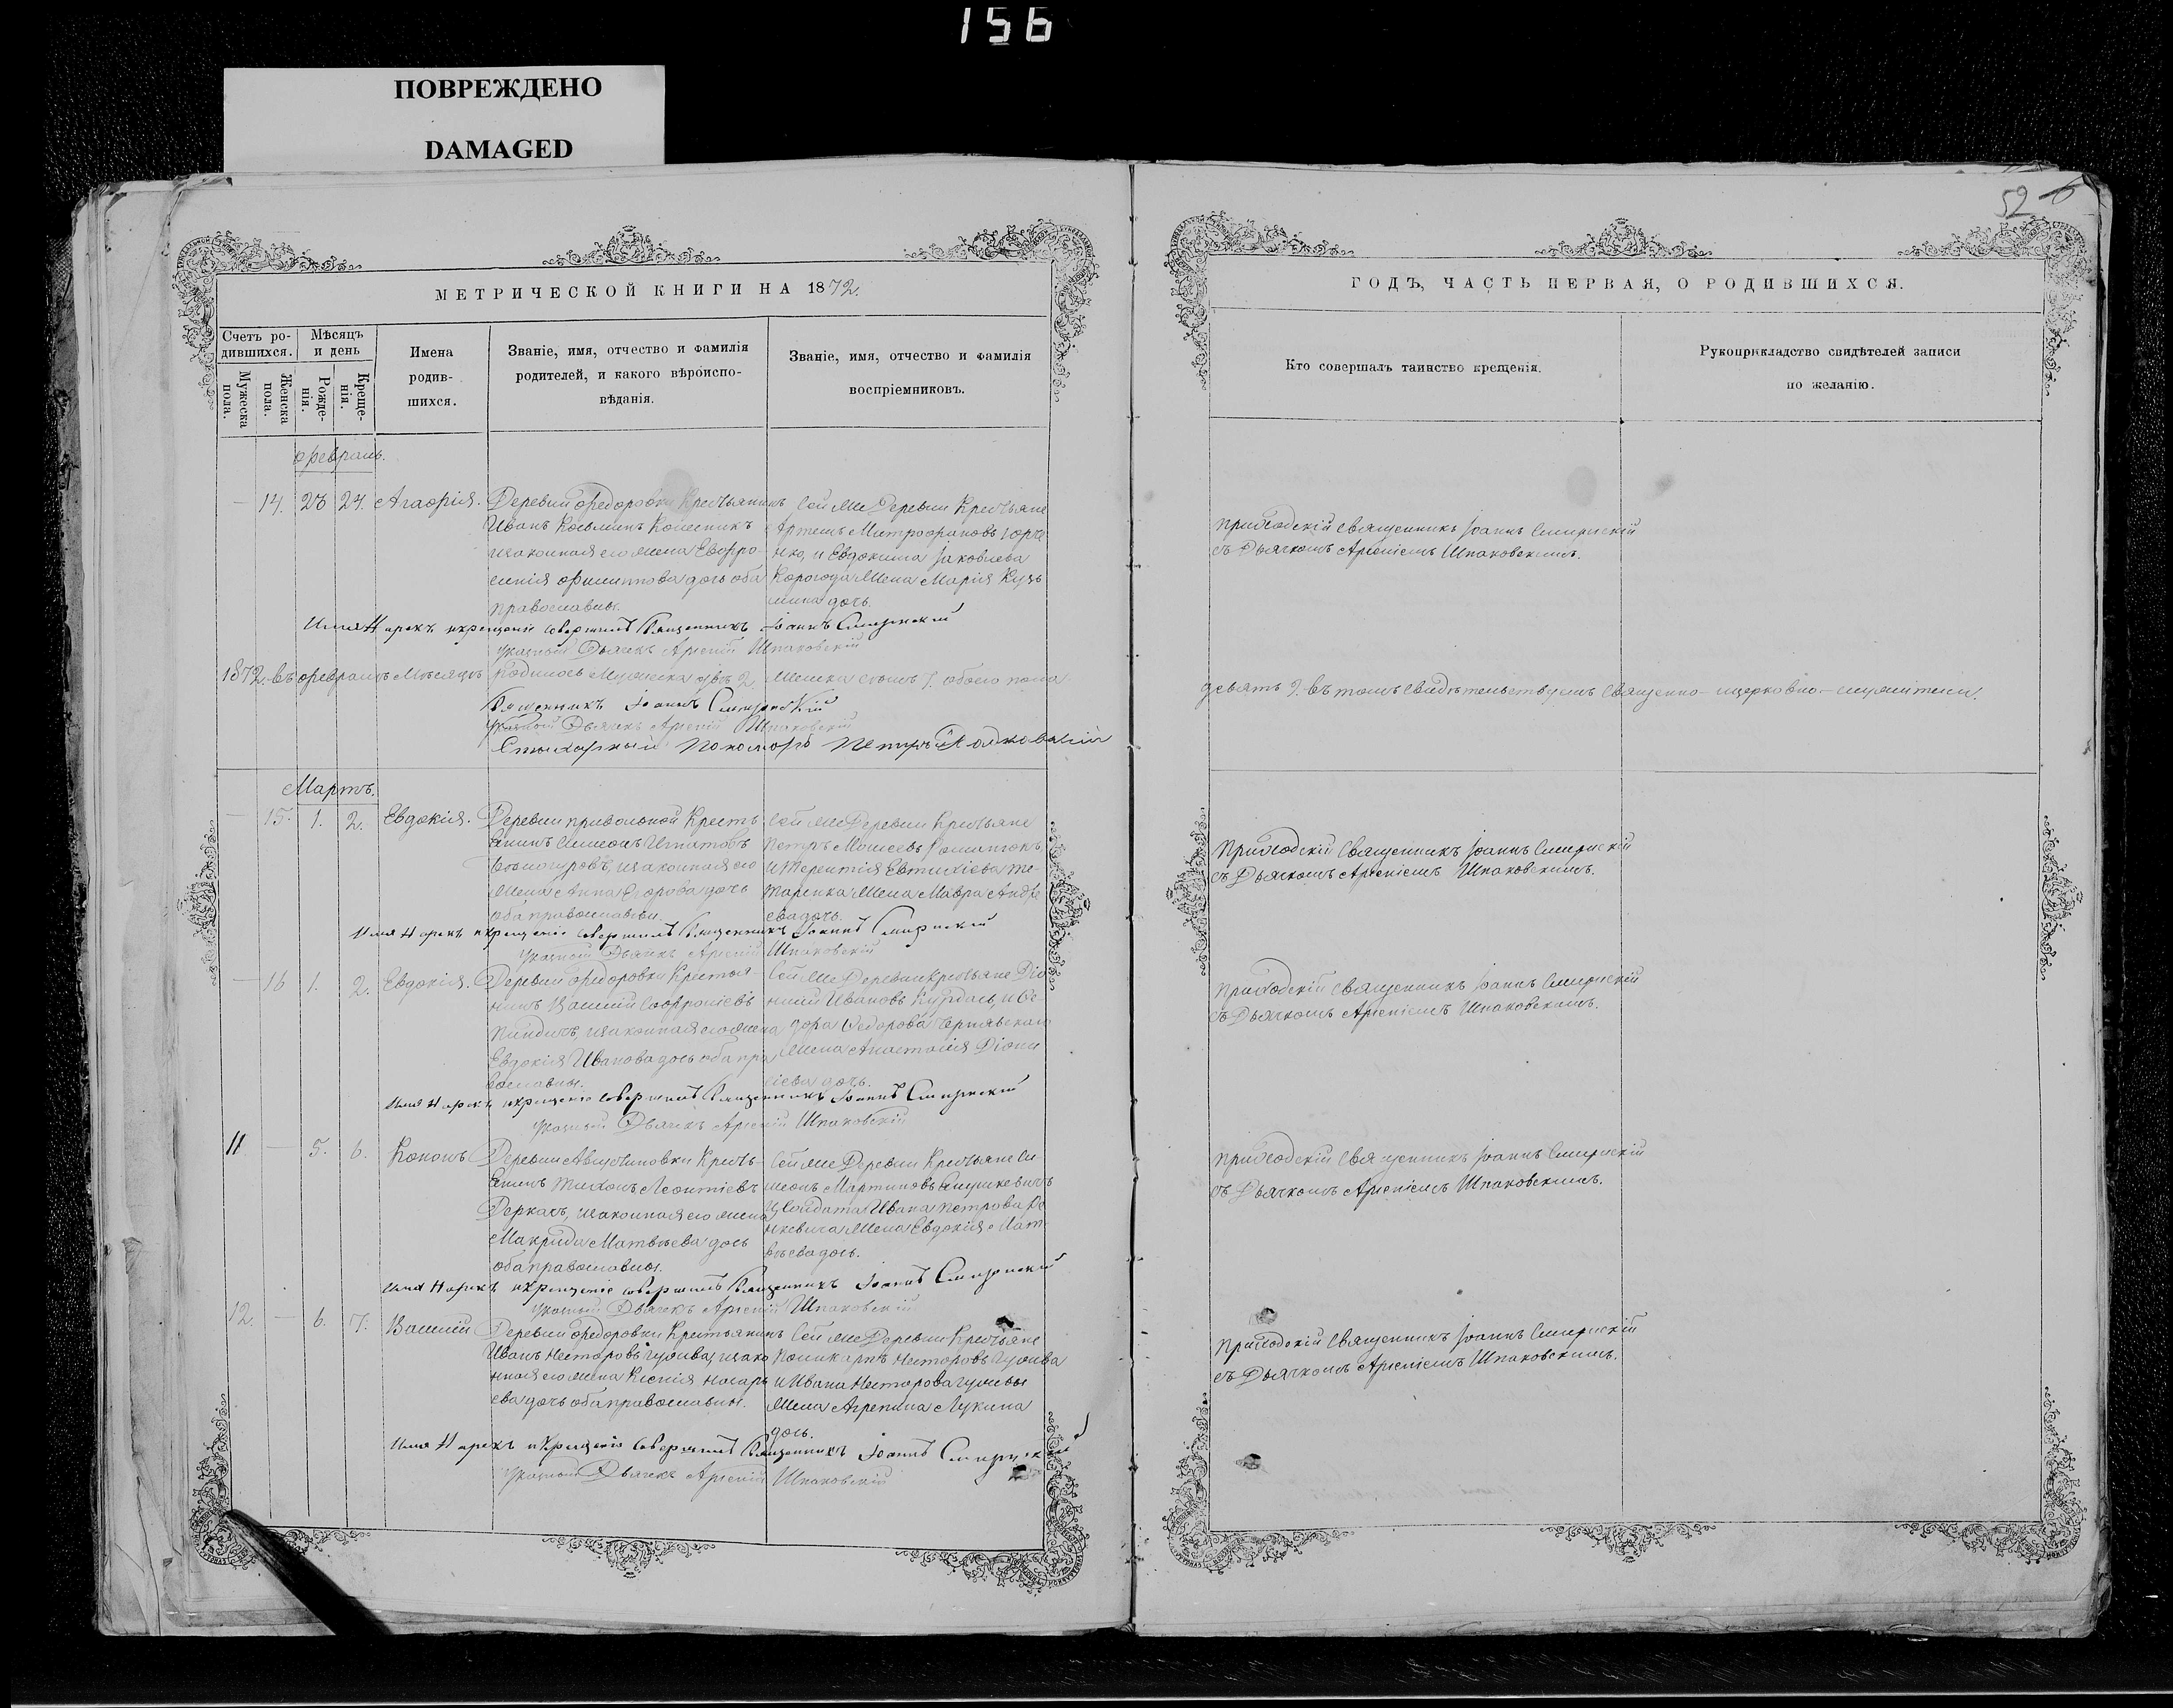 156
ПОВРЕЖДЕНО
DAMAGED
52
МЕТРИЧЕСКОЙ КНИГИ НА 1872.
Счетъ ро-
дившихся.
Мужеска
пола.
Женска
пола.
Мѣсяцъ
и день
Рожде-
нія.
Креще-
нія.
Имена
родив-
шихся.
Званіе, имя, отчество и фамилія
родителей, и какого вѣроиспо-
вѣданія.
Званіе, имя, отчество и фамилія
воспріемниковъ.
Февраль.
14. 23 24. Агафія.
Деревни Федоровки Крестьянинъ
Иванъ Косьминъ Колесникъ
изаконная его жена Евфро-
синія Филиппова дочь оба
православны.
Сей же Деревни Крестьяне
Артемъ Митрофановъ
и Евдокима Іаковлева
жена Марія Кузь
мина дочь.
Имя Нарекъ икрещеніе совершилъ Священникъ Іоаннъ Смирнскій
Указный Дьячекъ Арсеній Шпаковскій
1872. въ Февралѣ Мѣсяцѣ родилось Мужеска два 2, Женска семь 7. обоего пола
Священникъ Іоаннъ
Указный Дьячекъ Арсеній Шпаковскій
Стихарный Пономарь Петръ
Мартъ.
15. 1. 2. Евдокія.
Деревни привольной Кресть
янинъ Симеонъ Игнатовъ
изаконная его
жена Анна Егорова дочь
оба православны.
Сей же Деревни Крестьяне
Петръ Моисеевъ
и Терентія Евтихіева
жена Мавра Андре
ева дочь.
Имя Нарекъ икрещеніе совершилъ Священникъ Іоаннъ Смирнскій
Указный Дьячекъ Арсеній Шпаковскій
16 1. 2. Евдокія.
Деревни Федоровки Крестья-
нинъ Василій Софроніевъ
изаконная его жена
Евдокія Иванова дочь оба пра
вославны.
Сей же Деревни Крестьяне Діо
нисій Ивановъ
Федорова
жена Анастасія Діони
сіева дочь.
Имя Нарекъ икрещеніе совершилъ Священникъ Іоаннъ Смирнскій
Указный Дьячекъ Арсеній Шпаковскій
11 5. 6. Кононъ
Деревни Августиновки Кресть-
янинъ Тихонъ Леонтіевъ
Деркачъ, изаконная его жена
Макрида Матвѣева дочь
оба православны.
Сей же Деревни Крестьяне Си
меонъ Мартиновъ
и Солдата Ивана Петрова
жена Евдокія Мат-
вѣева дочь.
Имя Нарекъ икрещеніе совершилъ Священникъ Іоаннъ Смирнскій
Указный Дьячекъ Арсеній Шпаковскій
12. 6. 7. Василій
Деревни Федоровки Крестьянинъ
Иванъ Несторовъ изако
нная его жена Ксенія
ева дочь оба православны.
Сей же Деревни Крестьяне
Поликарпъ Несторовъ
и Ивана Несторова
жена Агрепина Лукина
дочь.
Имя Нарекъ икрещеніе совершилъ Священникъ Іоаннъ Смирнскій
Указный Дьячекъ Арсеній Шпаковскій
ГОДЪ, ЧАСТЬ ПЕРВАЯ, О РОДИВШИХСЯ.
Кто совершалъ таинство крещенія.
Рукоприкладство свидѣтелей записи
по желанію.
Приходскій Священникъ Іоаннъ Смирнскій
съ Дьячкомъ Арсеніемъ Шпаковскимъ.
девять 9. въ томъ свидѣтельствуемъ Священно- ицерковно- служители.
Приходскій Священникъ Іоаннъ Смирнскій
съ Дьячкомъ Арсеніемъ Шпаковскимъ.
Приходскій Священникъ Іоаннъ Смирнскій
съ Дьячкомъ Арсеніемъ Шпаковскимъ.
Приходскій Священникъ Іоаннъ Смирнскій
съ Дьячкомъ Арсеніемъ Шпаковскимъ.
Приходскій Священникъ Іоаннъ Смирнскій
съ Дьячкомъ Арсеніемъ Шпаковскимъ.